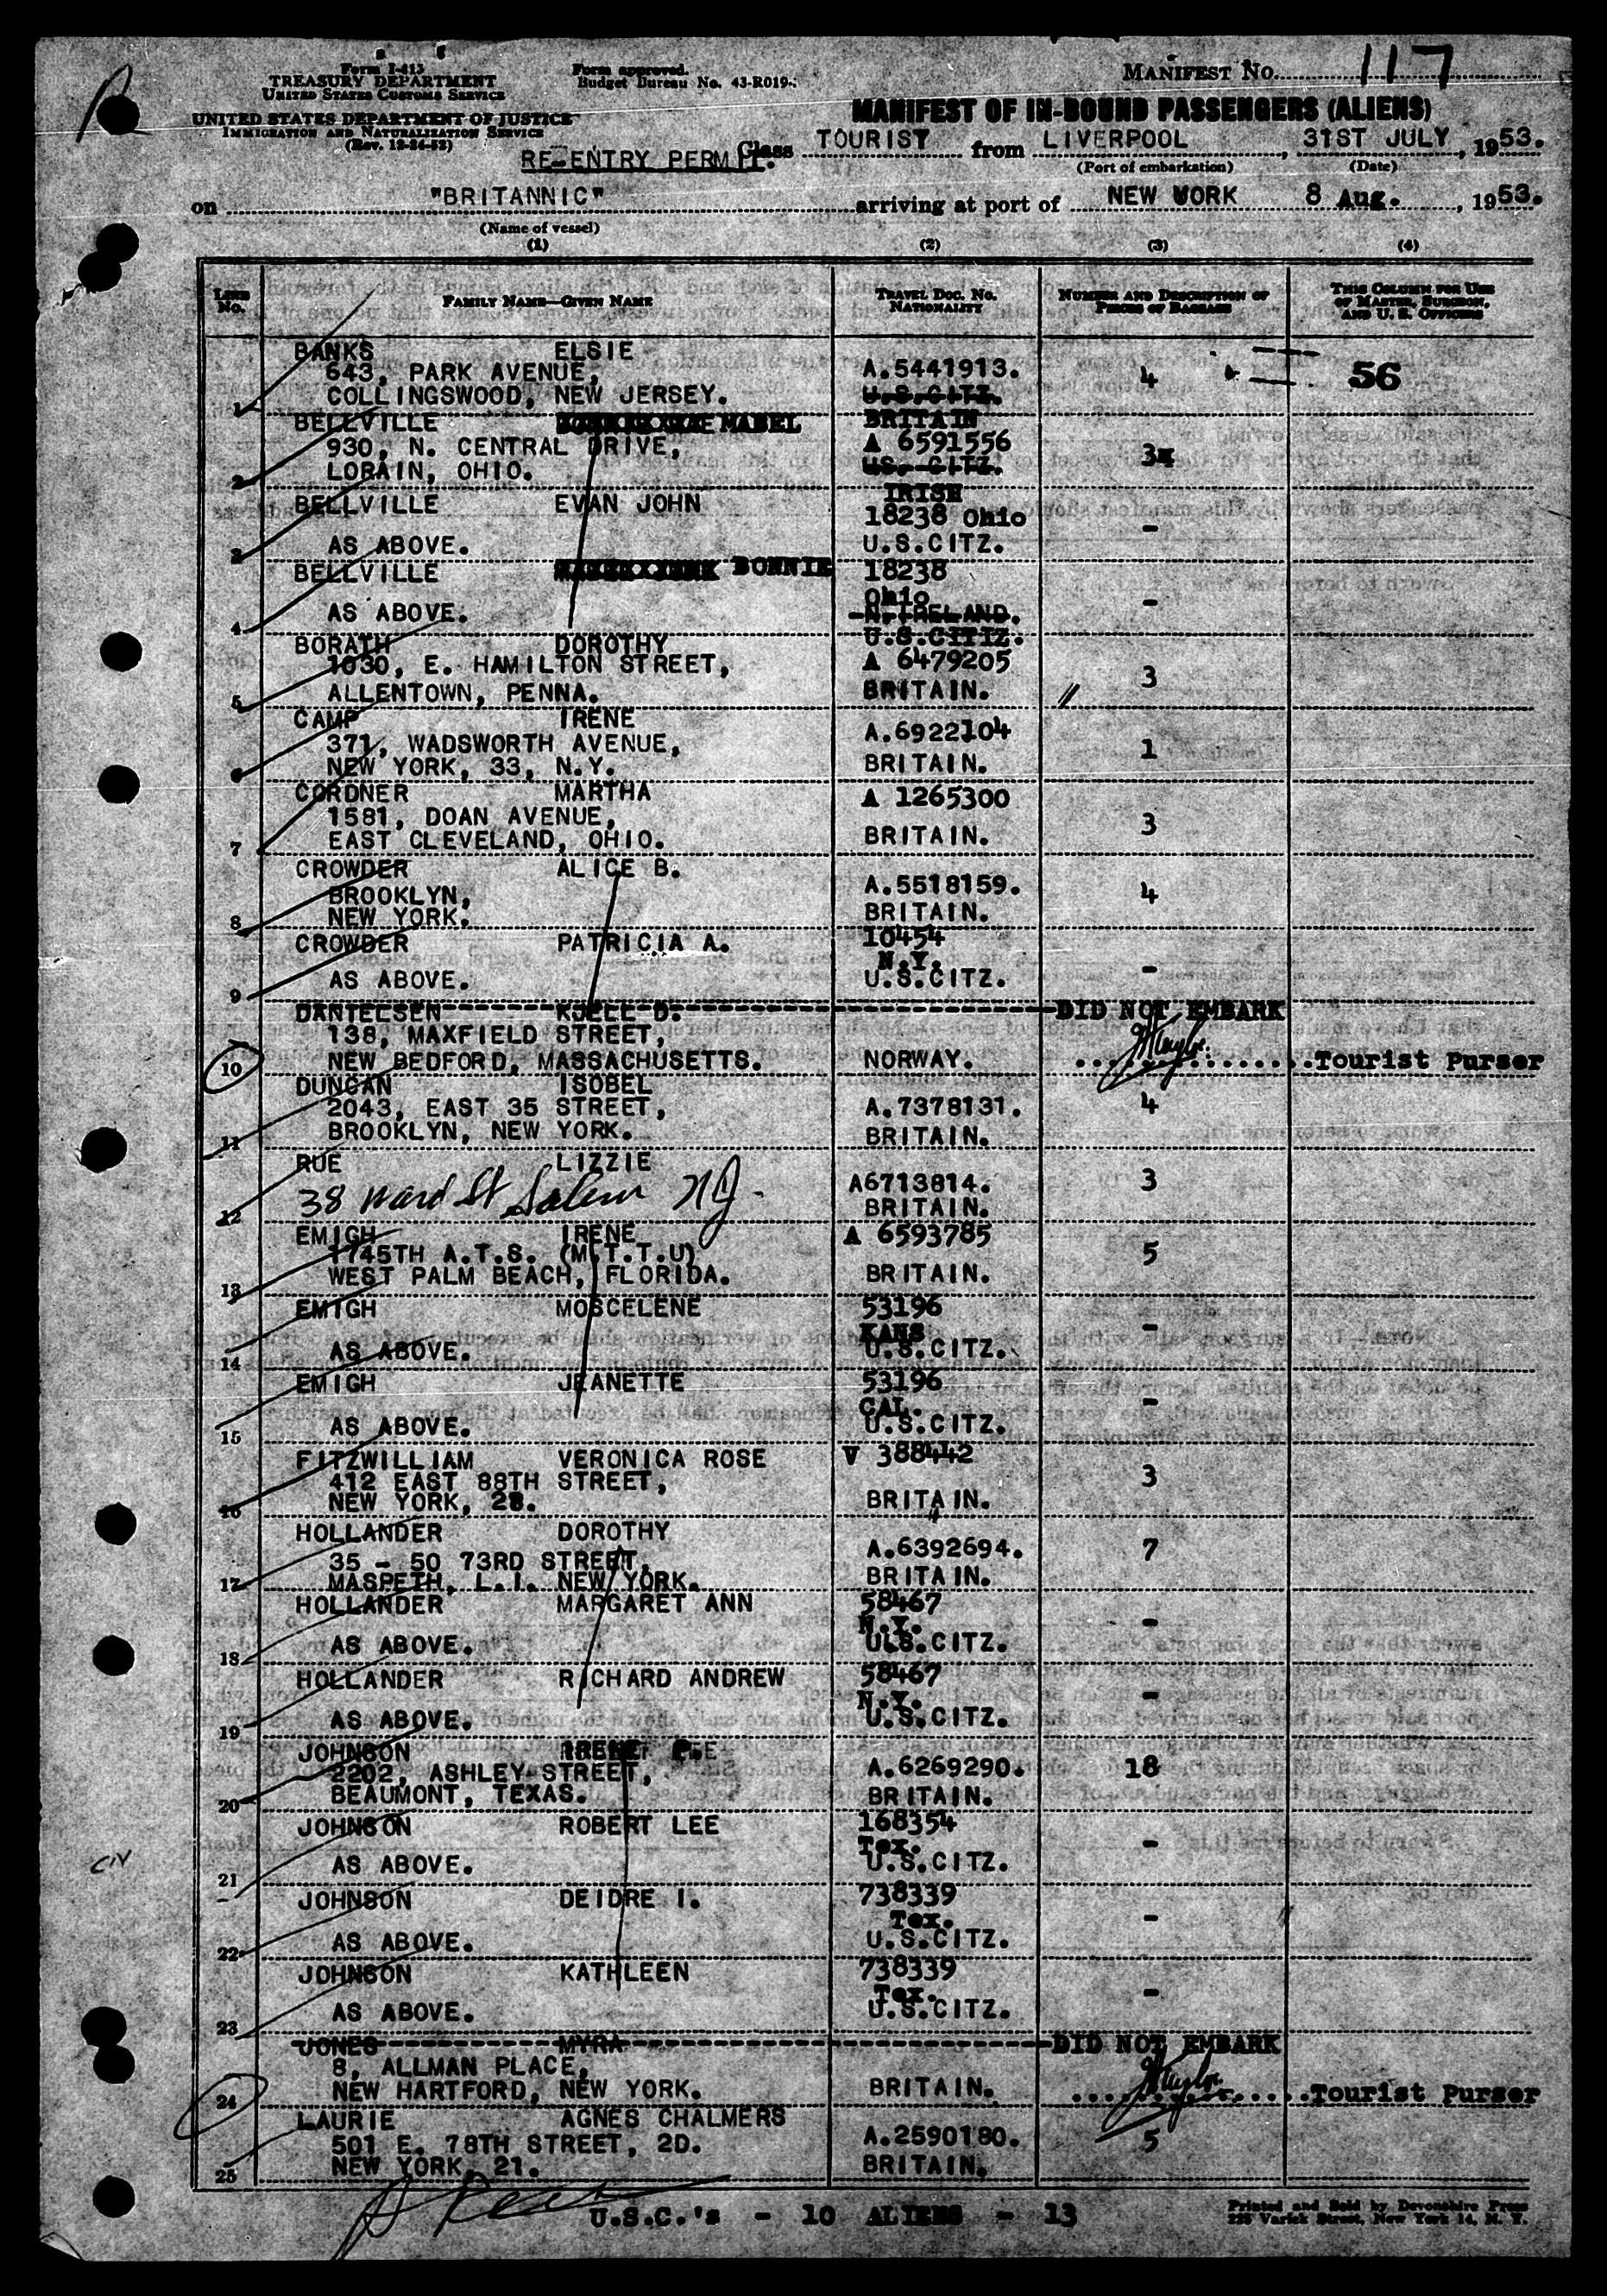 Form I-413
TREASURY DEPARTMENT
UNITED STATES CUSTOMS SERVICE
UNITED STATES DEPARTMENT OF JUSTICE
IMMIGRATION AND NATURALIZATION SERVICE
(Rev. 12-24-52)
Form approved.
Budget Bureau No. 43-R019-.
MANIFEST NO. 117
MANIFEST OF IN-BOUND PASSENGERS (ALIENS)
RE-ENTRY PERMIT. Class TOURIST from LIVERPOOL, 31ST JULY, 1953.
(Port of embarkation) (Date)
on "BRITANNIC" arriving at port of NEW YORK 8 Aug., 1953.
(Name of vessel)
(1) (2) (3) (4)
LINE NO. FAMILY NAME—GIVEN NAME TRAVEL DOC. NO. NATIONALITY NUMBER AND DESCRIPTION OF PIECES OF BAGGAGE THIS COLUMN FOR USE OF MASTER, SURGEON, AND U. S. OFFICERS
BANKS ELSIE
643, PARK AVENUE, A.5441913. 4 56
1 COLLINGSWOOD, NEW JERSEY. U.S.CITZ.
BELLVILLE MABEL BRITAIN
930, N. CENTRAL DRIVE, A 6591556 3
2 LORAIN, OHIO. US. CITZ.
BELLVILLE EVAN JOHN IRISH
18238 Ohio -
3 AS ABOVE. U.S.CITZ.
BELLVILLE BONNIE 18238
Ohio -
4 AS ABOVE. N.IRELAND.
BORATH DOROTHY U.S.CITIZ.
1030, E. HAMILTON STREET, A 6479205 3
5 ALLENTOWN, PENNA. BRITAIN.
CAMP IRENE
371, WADSWORTH AVENUE, A.6922104 1
6 NEW YORK, 33, N.Y. BRITAIN.
CORDNER MARTHA A 1265300
1581, DOAN AVENUE, 3
7 EAST CLEVELAND, OHIO. BRITAIN.
CROWDER ALICE B.
BROOKLYN, A.5518159. 4
8 NEW YORK. BRITAIN.
CROWDER PATRICIA A. 10454
N.Y. -
9 AS ABOVE. U.S.CITZ.
DANIELSEN KJELL D. DID NOT EMBARK
138, MAXFIELD STREET,
10 NEW BEDFORD, MASSACHUSETTS. NORWAY. Tourist Purser
DUNCAN ISOBEL
2043, EAST 35 STREET, A.7378131. 4
11 BROOKLYN, NEW YORK. BRITAIN.
RUE LIZZIE
A6713814. 3
12 38 Ward St Salem NJ. BRITAIN.
EMIGH IRENE A 6593785
1745TH A.T.S. (M.T.T.U) 5
13 WEST PALM BEACH, FLORIDA. BRITAIN.
EMIGH MOSCELENE 53196
KANS -
14 AS ABOVE. U.S.CITZ.
EMIGH JEANETTE 53196
CAL. -
15 AS ABOVE. U.S.CITZ.
FITZWILLIAM VERONICA ROSE V 388442
412 EAST 88TH STREET, 3
16 NEW YORK, 28. BRITAIN.
HOLLANDER DOROTHY
35 - 50 73RD STREET, A.6392694. 7
17 MASPETH, L.I. NEW YORK. BRITAIN.
HOLLANDER MARGARET ANN 58467
N.Y. -
18 AS ABOVE. U.S.CITZ.
HOLLANDER RICHARD ANDREW 58467
N.Y. -
19 AS ABOVE. U.S.CITZ.
JOHNSON IRENE P.
2202, ASHLEY STREET, A.6269290. 18
20 BEAUMONT, TEXAS. BRITAIN.
JOHNSON ROBERT LEE 168354
Tex. -
21 AS ABOVE. U.S.CITZ.
JOHNSON DEIDRE I. 738339
Tex. -
22 AS ABOVE. U.S.CITZ.
JOHNSON KATHLEEN 738339
Tex. -
23 AS ABOVE. U.S.CITZ.
JONES MYRA DID NOT EMBARK
8, ALLMAN PLACE,
24 NEW HARTFORD, NEW YORK. BRITAIN. Tourist Purser
LAURIE AGNES CHALMERS
501 E. 78TH STREET, 2D. A.2590180. 5
25 NEW YORK, 21. BRITAIN.
U.S.C.'s - 10 ALIENS - 13
Printed and Sold by Devonshire Press
225 Varick Street, New York 14, N. Y.